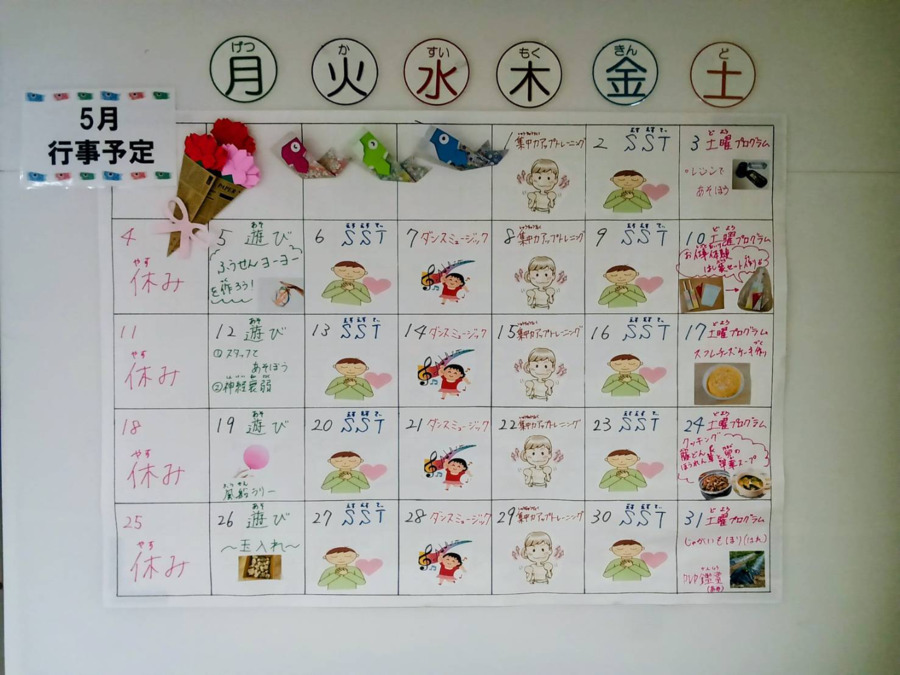 げつ
月
か
火
すい
水
もく
木
きん
金
ど
土
5月
行事予定
1 集中力アップトレーニング
2 SST
3 土曜プログラム
あそぼう
4
やす
休み
5 遊び
あそ
ふうせんヨーヨー
を作ろう!
6 SST
7 ダンスミュージック
8 集中力アップトレーニング
9 SST
10 土曜プログラム
お仕事体験
はし袋セット作り
11
やす
休み
12 遊び
あそ
① スタッフと
あそぼう
②神経衰弱
13 SST
14 ダンスミュージック
15 集中力アップトレーニング
16 SST
17 土曜プログラム
スフレチーズケーキ作り
18
やす
休み
19 遊び
あそ
ふうせん
風船ラリー
20 SST
21 ダンスミュージック
22 集中力アップトレーニング
23 SST
24 土曜プログラム
クッキング
豚どん
25
やす
休み
26 遊び
あそ
～玉入れ～
27 SST
28 ダンスミュージック
29 集中力アップトレーニング
30 SST
31 土曜プログラム
じゃがいもほり(はれ)
DVD鑑賞
(あめ)